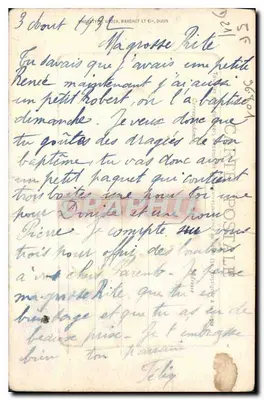 3 Aout 1932
Ma grosse Rite
Tu savais que j'avais une petite
Renée maintenant j'ai aussi
un petit Robert, on l'a baptisé
dimanche. Je veux donc que
tu goûtes des dragées de son
baptême, tu vas donc avoir
un petit paquet qui contient
trois boîtes, une pour toi une
pour et une pour
Pierre. Je compte sur vous
trois pour offrir des bonbons
à vos chers parents. Je pense
ma grosse Rite, que tu es
bien sage et que tu as eu de
beaux prix. Je t'embrasse
bien ton parrain
CARTE POSTALE